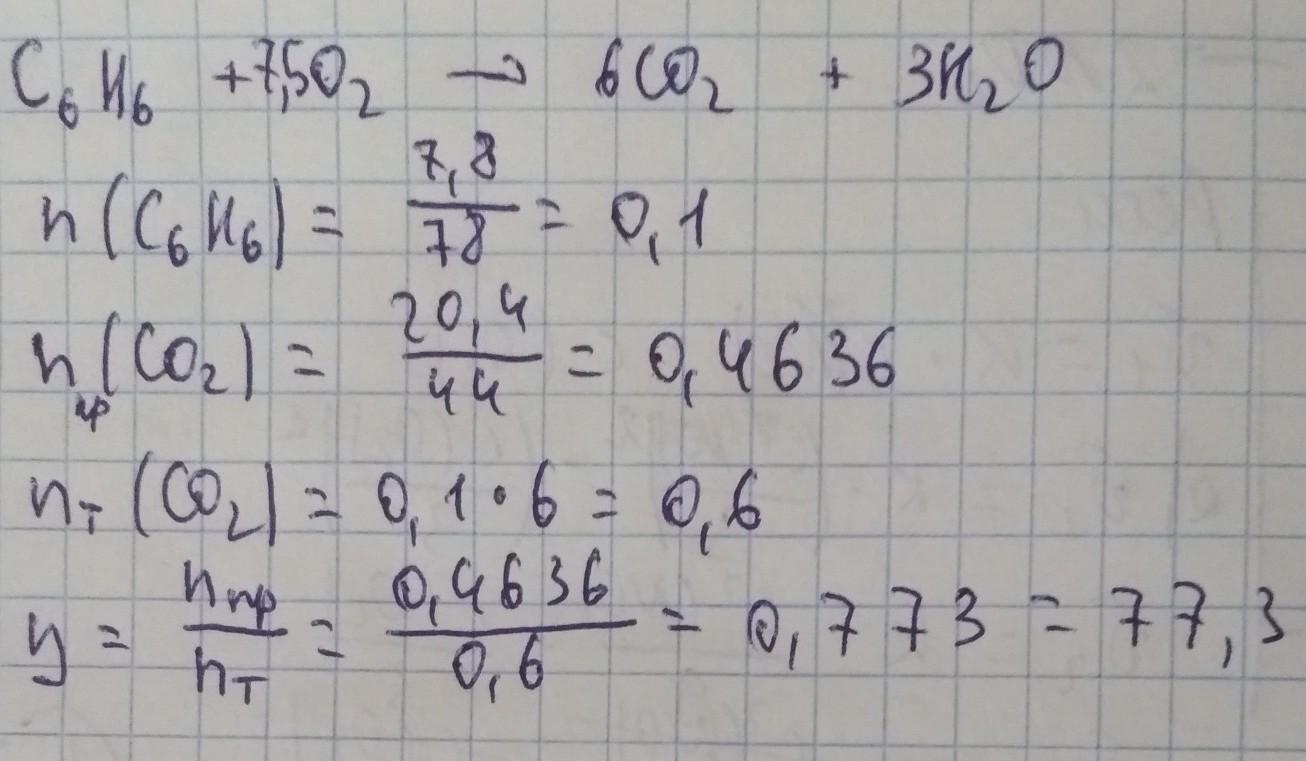 C₆H₆ + 7,5O₂ → 6CO₂ + 3H₂O
n(C₆H₆) = 7,8/78 = 0,1
nпр(CO₂) = 20,4/44 = 0,4636
nт(CO₂) = 0,1 · 6 = 0,6
y = nпр/nт = 0,4636/0,6 = 0,773 = 77,3